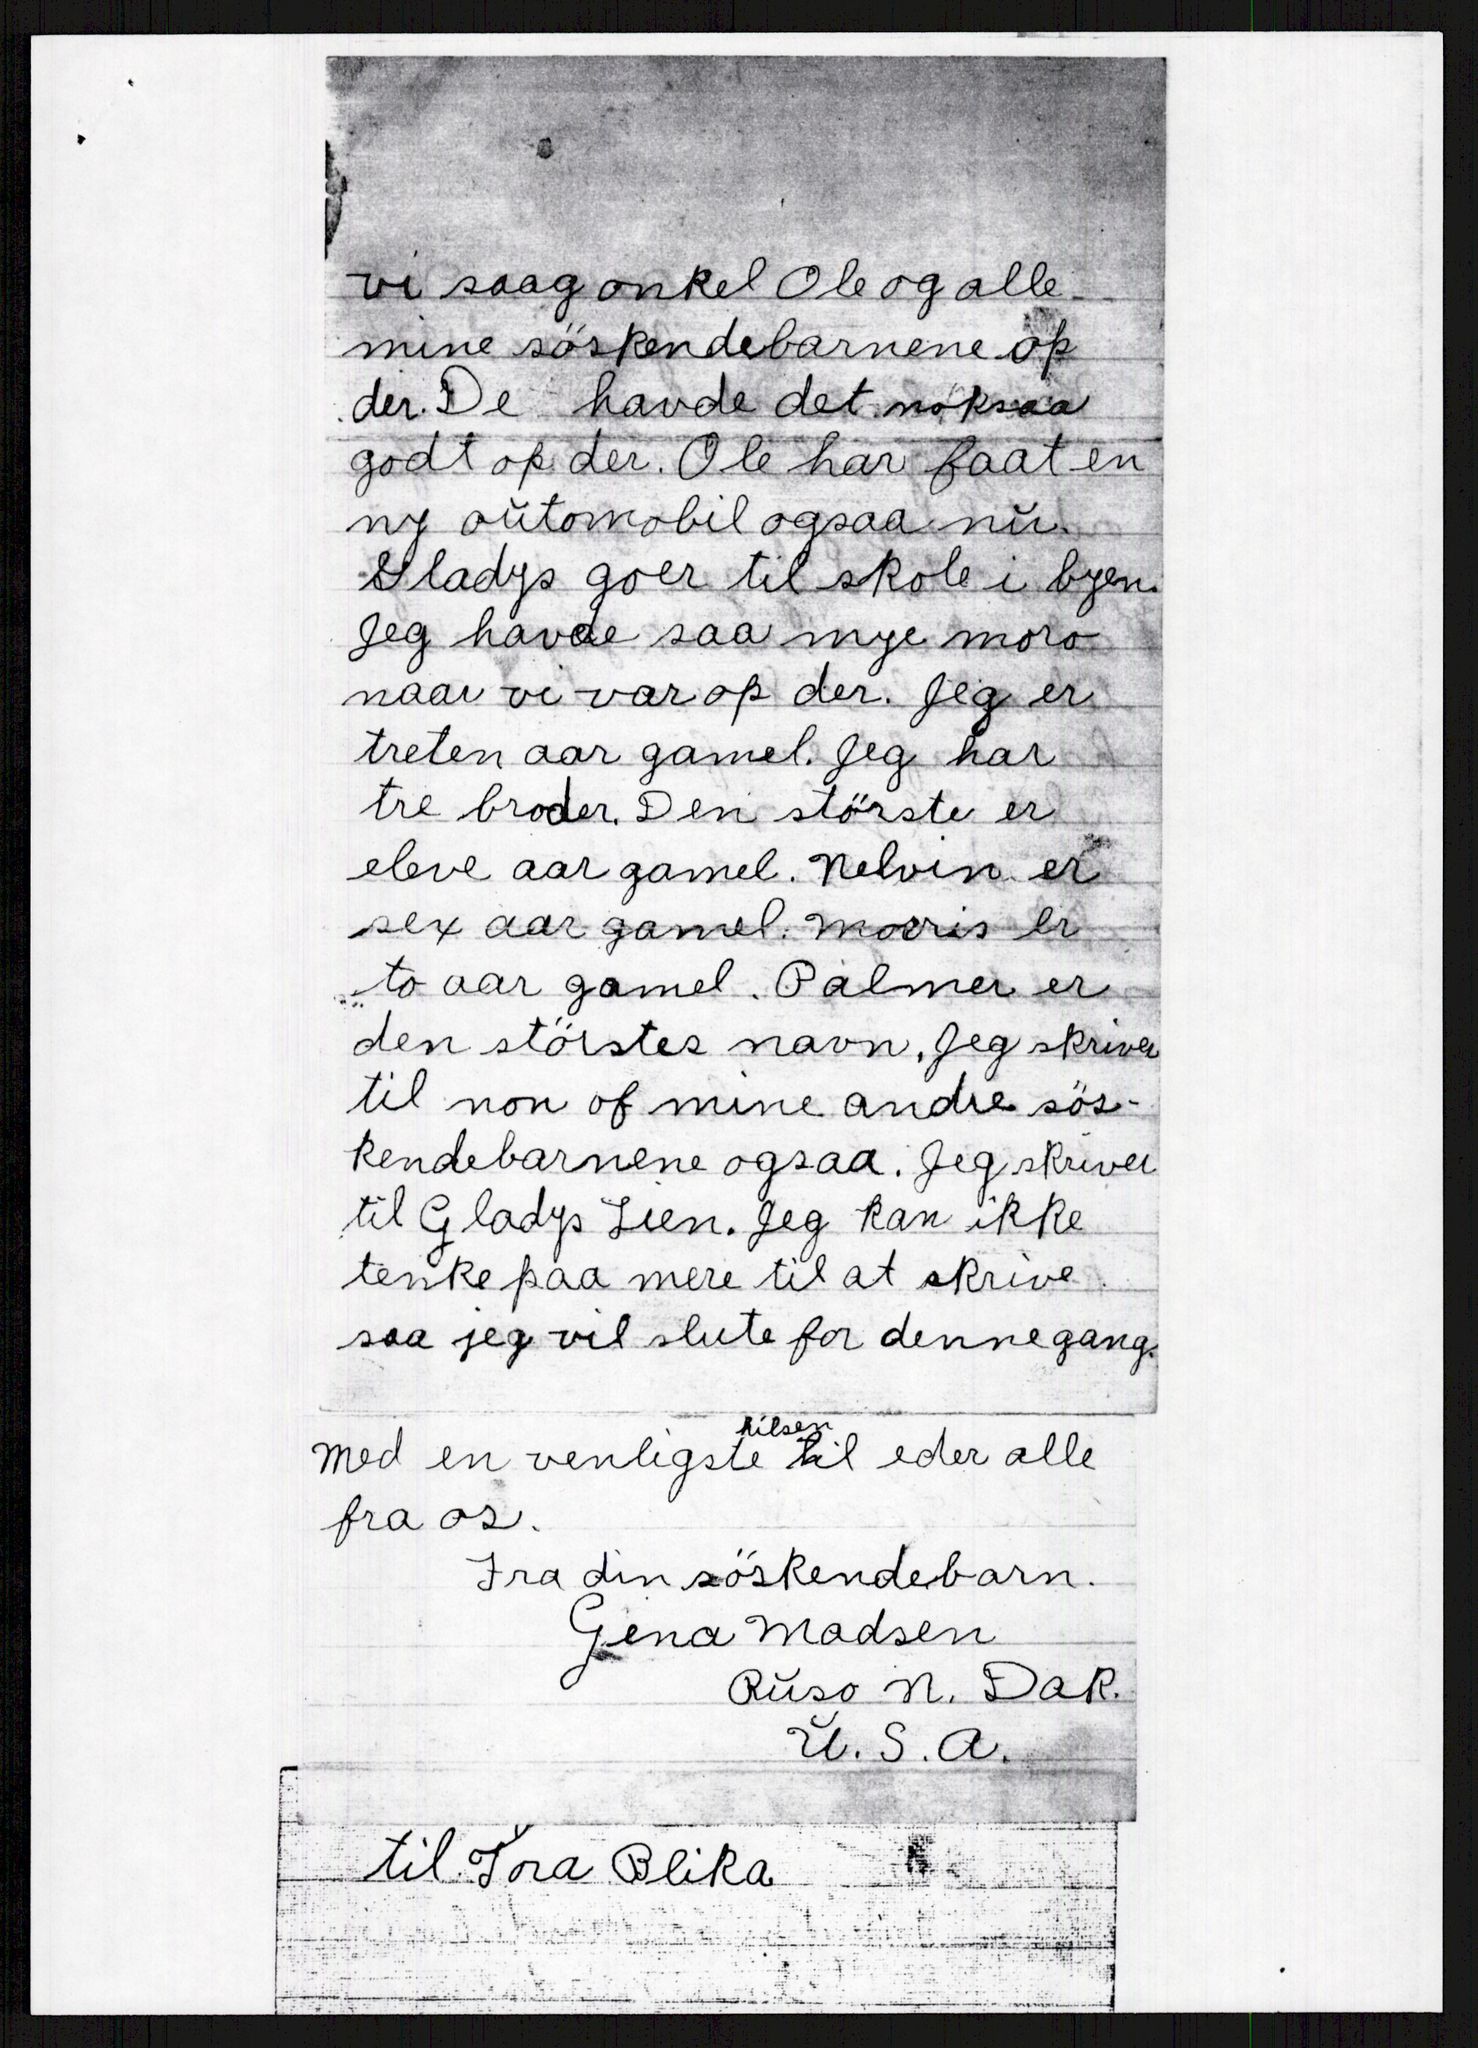 vi saag onkel Ole og alle
mine söskendebarnene op
der. De havde det noksaa
godt op der. Ole har faat en
ny automobil ogsaa nŭ.
Gladys goer til skole i byen.
Jeg havde saa mye moro
naar vi var op der. Jeg er
treten aar gamel. Jeg har
tre broder. Den störste er
eleve aar gamel. Nelvin er
sex aar gamel. Morris er
to aar gamel. Palmer er
den störstes navn. Jeg skriver
til non of mine andre sös-
kendebarnene ogsaa. Jeg skriver
til Gladys Lien. Jeg kan ikke
tenke paa mere til at skrive
saa jeg vil slute for denne gang.
Med en venligste hilsen til eder alle
fra os.
Fra din söskendebarn.
Gena Madsen
Rŭso N. Dak.
U. S. A.
til Tora Blika